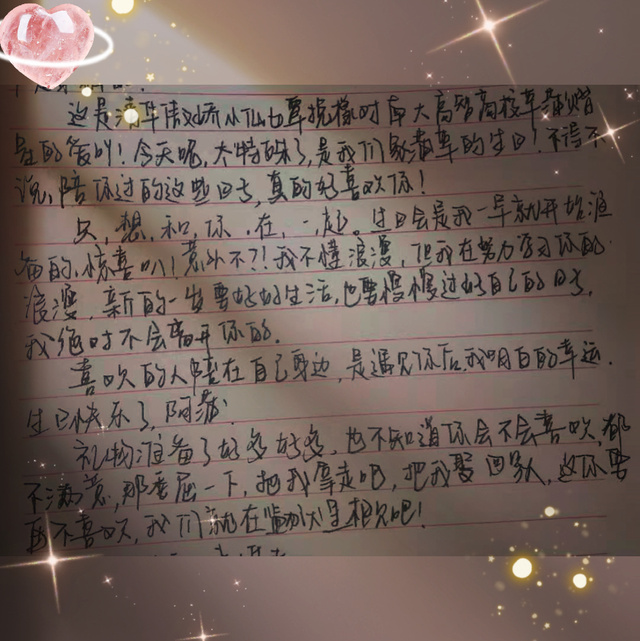 这是清华园娇小仙女覃挽橡对南大高智商校草
星的答叭！今天呢，太特殊了，是我们家清草的生日！不得不
说，陪你过的这些日子，真的好喜欢你！
只，想，和，你，在，一，起。过日会是我一早就开始准
备的，惊喜叭！意外不？！我不懂浪漫，但我在努力学习你的
浪漫，新的一岁要好好生活，也要慢慢过好自己的日子，
我绝对不会离开你的．
喜欢的人陪在自己身边，是遇见你后，我明白的幸运．
生日快乐了，阿
礼物准备了好多好多，也不知道你会不会喜欢，都
不满意，那委屈一下，把我拿走吧，把我娶回家，这你要
再不喜欢，我们就在 相见吧！